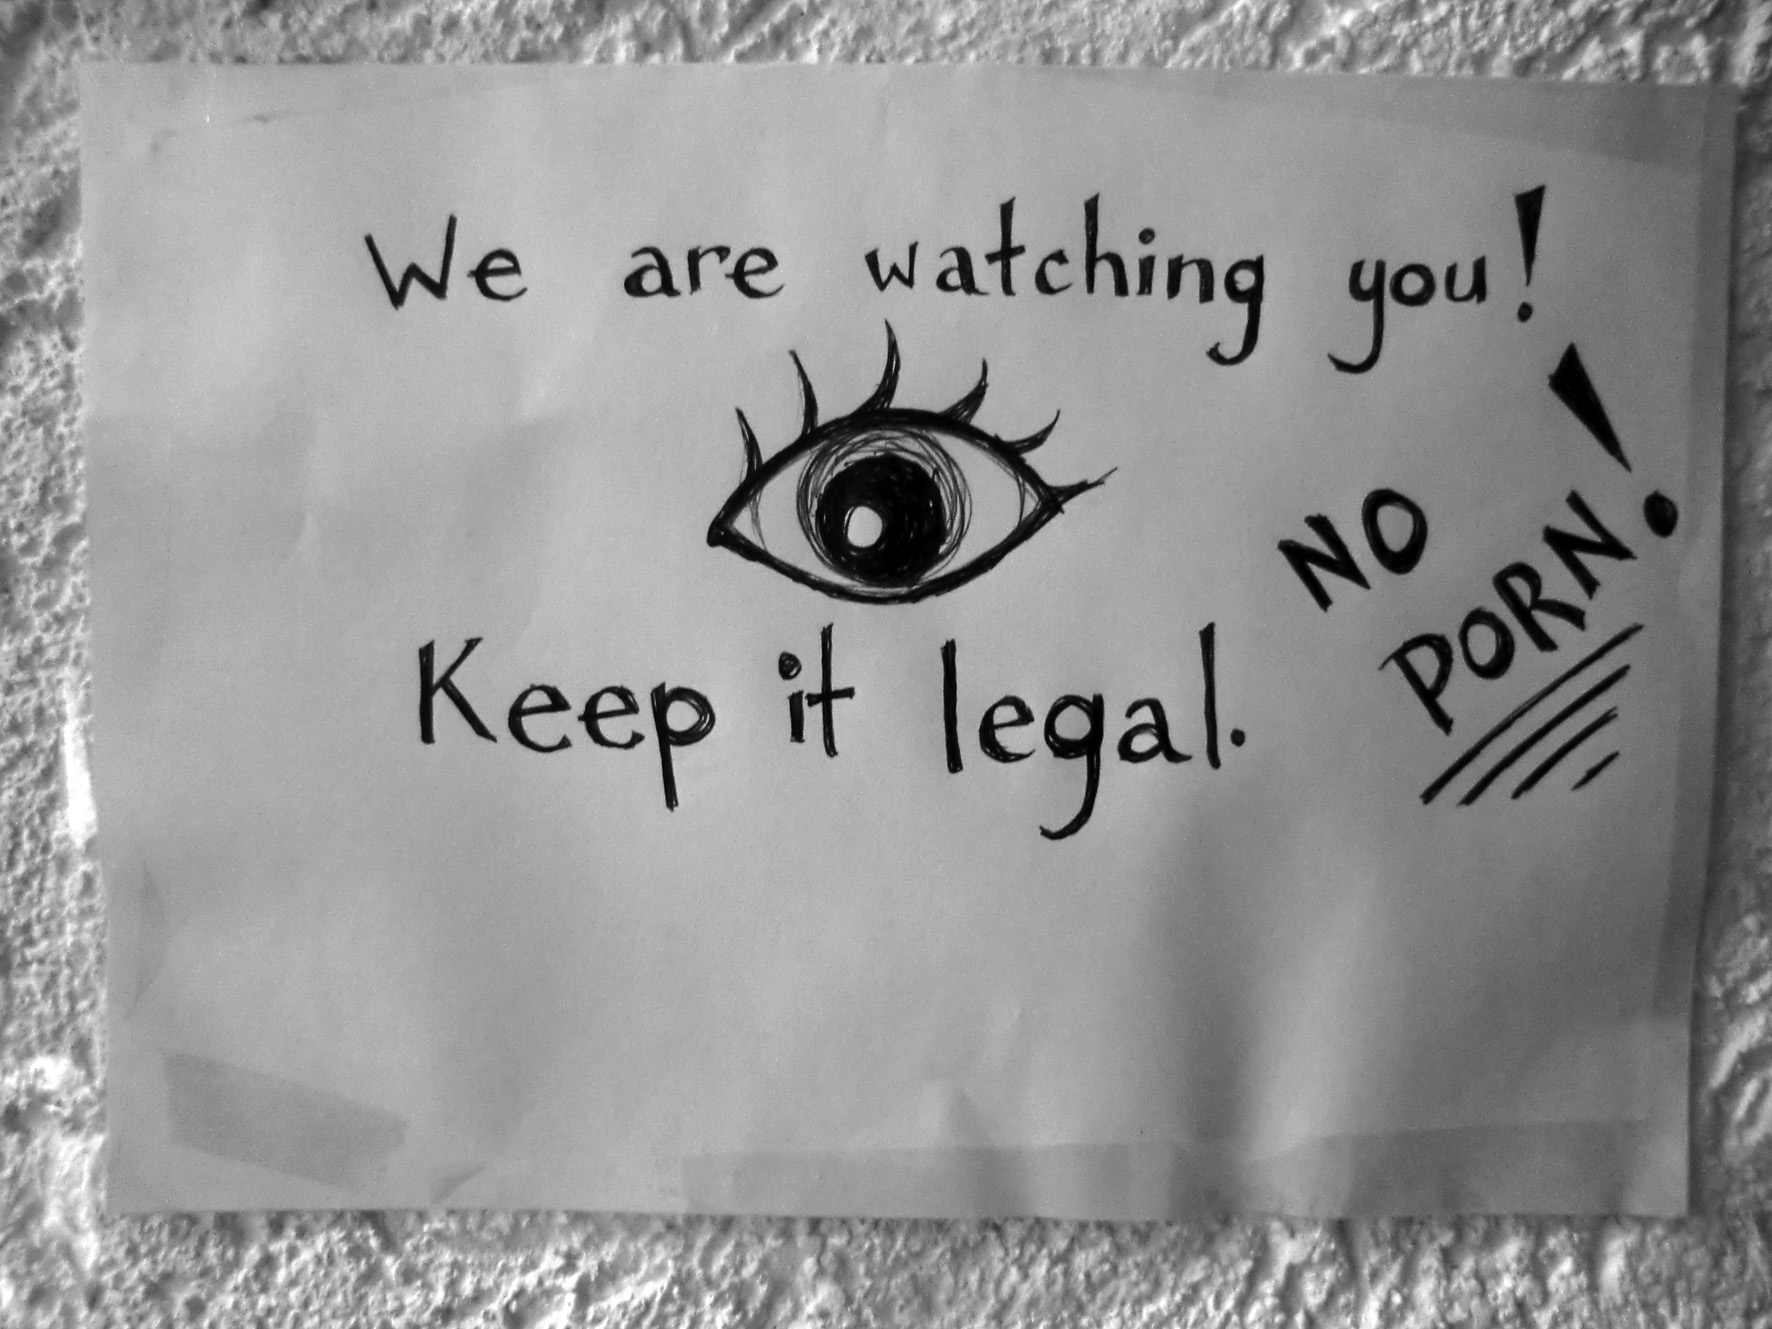 We are watching you!
Keep it legal.
NO
PORN!